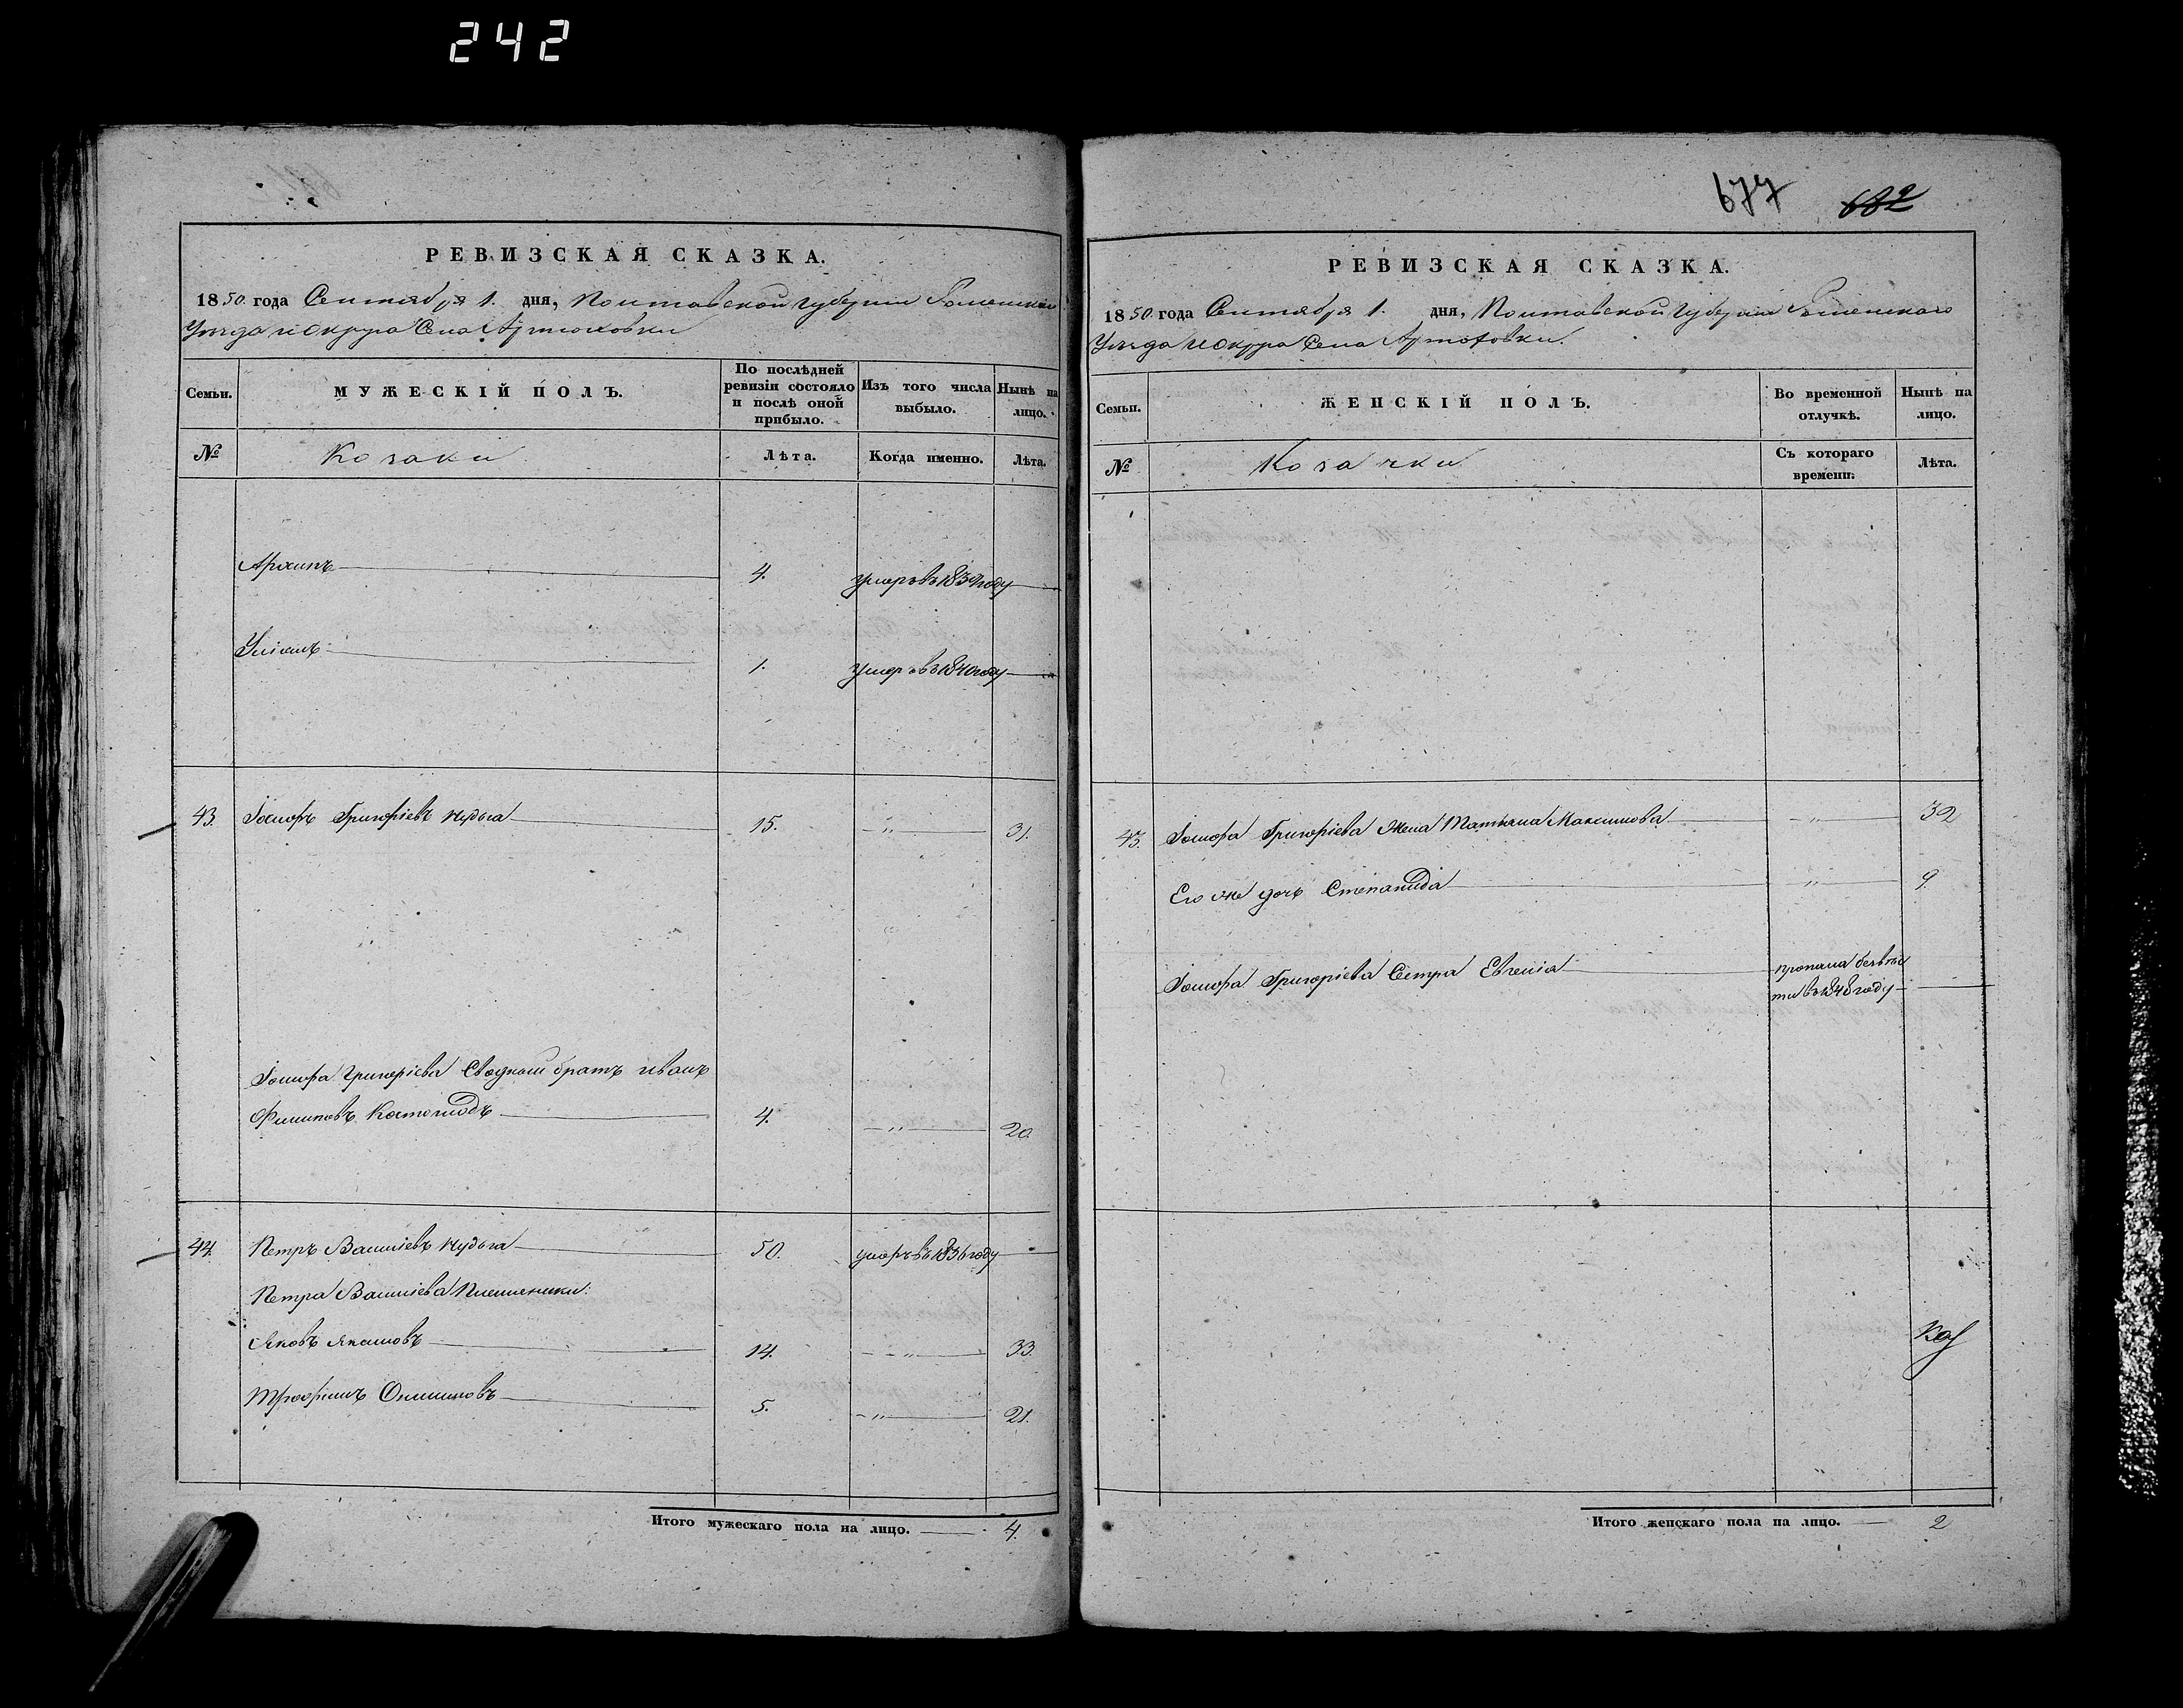 242
РЕВИЗСКАЯ СКАЗКА.
1850. года Сентября 1. дня, Полтавской губерніи Роменскаго
Уѣзда и округа Села Артюховки
Семьи. МУЖЕСКІЙ ПОЛЪ. По послѣдней ревизіи состояло и послѣ оной прибыло. Изъ того числа выбыло. Нынѣ на лицо.
№ Козаки Лѣта. Когда именно. Лѣта.
Архипъ 4. умеръ въ 1839 году
1. умеръ въ 1840 году
43. Іосифъ Григоріевъ Кудьга 15. — " — 31.
Іосифа Григоріева Сводный братъ иванъ
Филиповъ 4. — " — 20
44. Петръ Василіевъ Кудьга 50. умеръ въ 1836 году
Петра Василіева Племенники:
Яковъ Якимовъ 14. — " — 33.
Трофимъ 5. — " — 21.
Итого мужескаго пола на лицо. 4.
677 682
РЕВИЗСКАЯ СКАЗКА.
1850 года Сентября 1. дня, Полтавской Губерніи Роменскаго
Уѣзда и Округа Села Артюховки.
Семьи. ЖЕНСКІЙ ПОЛЪ. Во временной отлучкѣ. Нынѣ на лицо.
№ Козачки Съ котораго времени. Лѣта.
43. Іосифа Григоріева Жена Татьяна Максимова — " — 32
Его же дочь Степанида — " — 9.
Іосифа Григоріева Сестра Евгенія пропала безъвѣс
ти въ 1848 году
Итого женскаго пола на лицо. 2